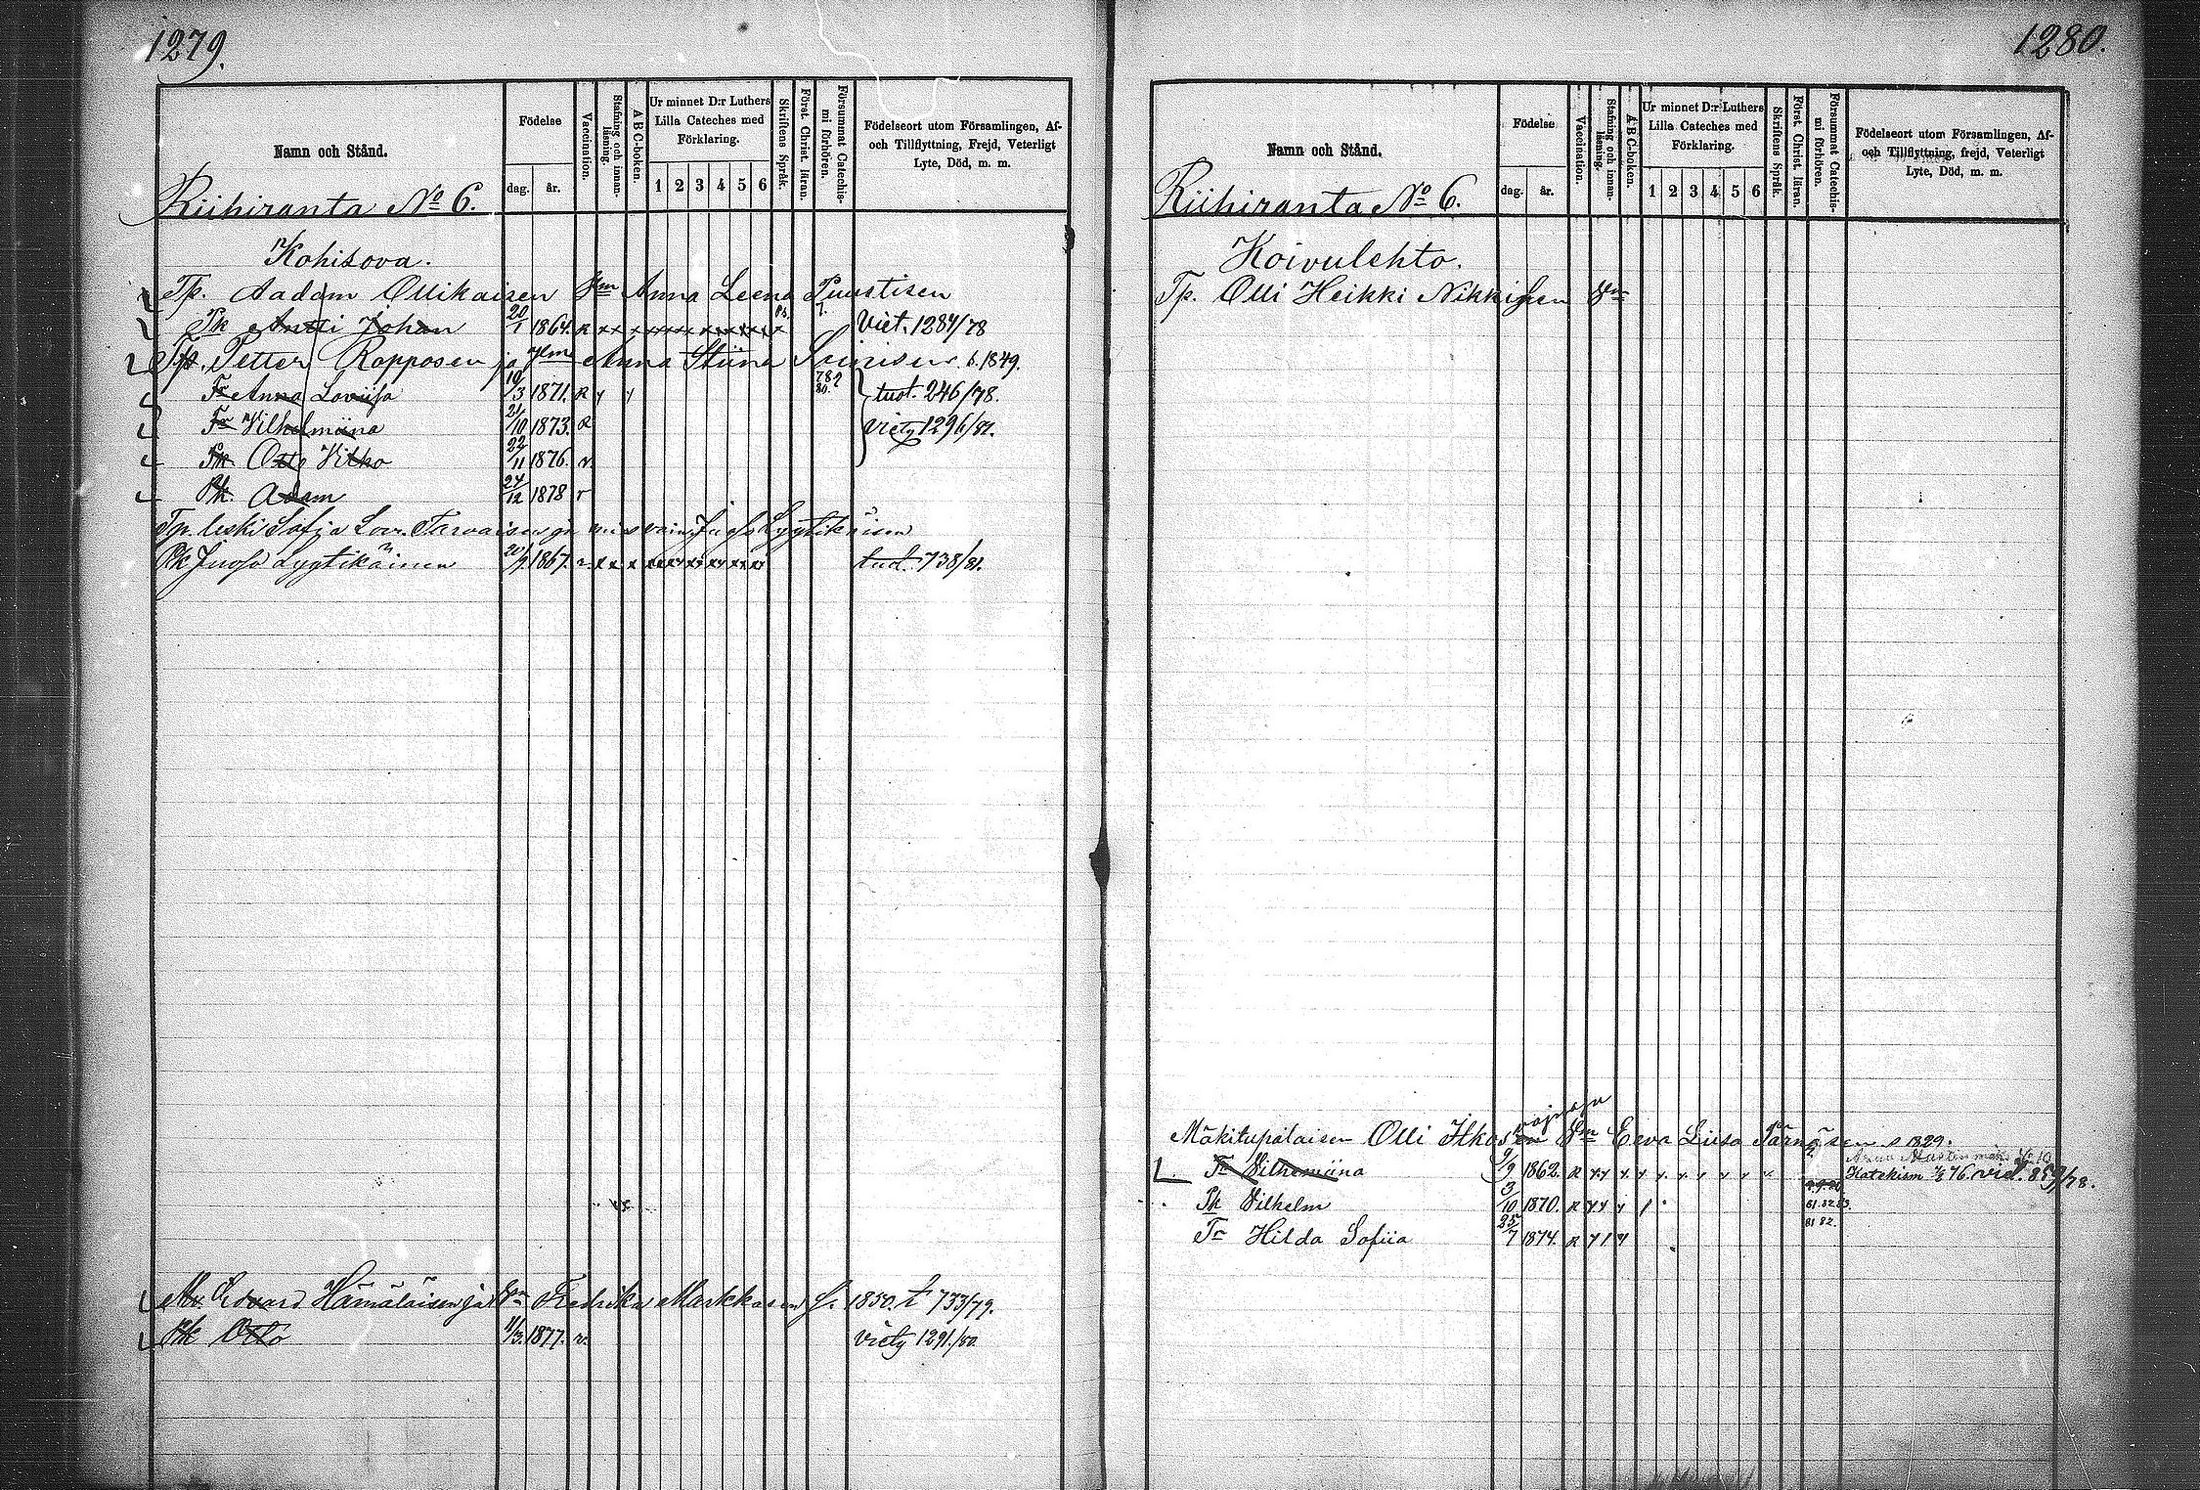 1279.
Namn och Stånd.
Födelse
dag.
år.
Vaccination.
Stafning och innanläsning.
A B C-boken.
Ur minnet D:r Luthers
Lilla Cateches med
Förklaring.
1 2 3 4 5 6
Skriftens Språk.
Först. Christ. läran.
Försummat Catechismi förhören.
Födelseort utom Församlingen, Af-
och Tillflyttning, Frejd, Veterligt
Lyte, Död, m. m.
Riihiranta No 6.
Kohisova.
Tp. Aadam Ollikaisen Vm Anna Leena Puustisen
Pk Antti Johan 20/1 1864. R Viet. 1284/78
Tp. Petter Ropposen ja Vm Anna Stiina s. 1849.
Tr Anna Loviisa 19/3 1871. R tuot. 246/78.
Tr Vilhelmiina 21/10 1873. R viety 1296/81.
Pk Otto Vilho 22/11 1876. v.
Pk. Adam 24/12 1878 r
Tp. leski Sofia Lov. Tarvaisen ja Lyytikäisen
Pk Juoso Lyytikäinen 20/9 1867. tuot. 738/81.
Mv. Edvard Hämäläisen ja Vm Fredrika Markkasen s. 1850. t 733/79.
Pk Otto 11/3. 1877. v. viety 1291./80.
1280.
Namn och Stånd.
Födelse
dag.
år.
Vaccination.
Stafning och innanläsning.
A B C-boken.
Ur minnet D:r Luthers
Lilla Cateches med
Förklaring.
1 2 3 4 5 6
Skriftens Språk.
Först. Christ. läran.
Försummat Catechismi förhören.
Födelseort utom Församlingen, Af-
och Tillflyttning, frejd, Veterligt
Lyte, Död, m. m.
Riihiranta No 6.
Koivulehto.
Tp. Olli Heikki Nikkisen Vm
Mäkitupalaisen Olli Ikosen Vm Eeva Liisa Tärnäsen s 1829.
Tr Vilhemiina 9/9 1862. R Katekism 76. vid. 859/78.
Pk Vilhelm 3/10 1870. R 81.82.83.
Tr Hilda Sofiia 25/7 1874. R 81 82.